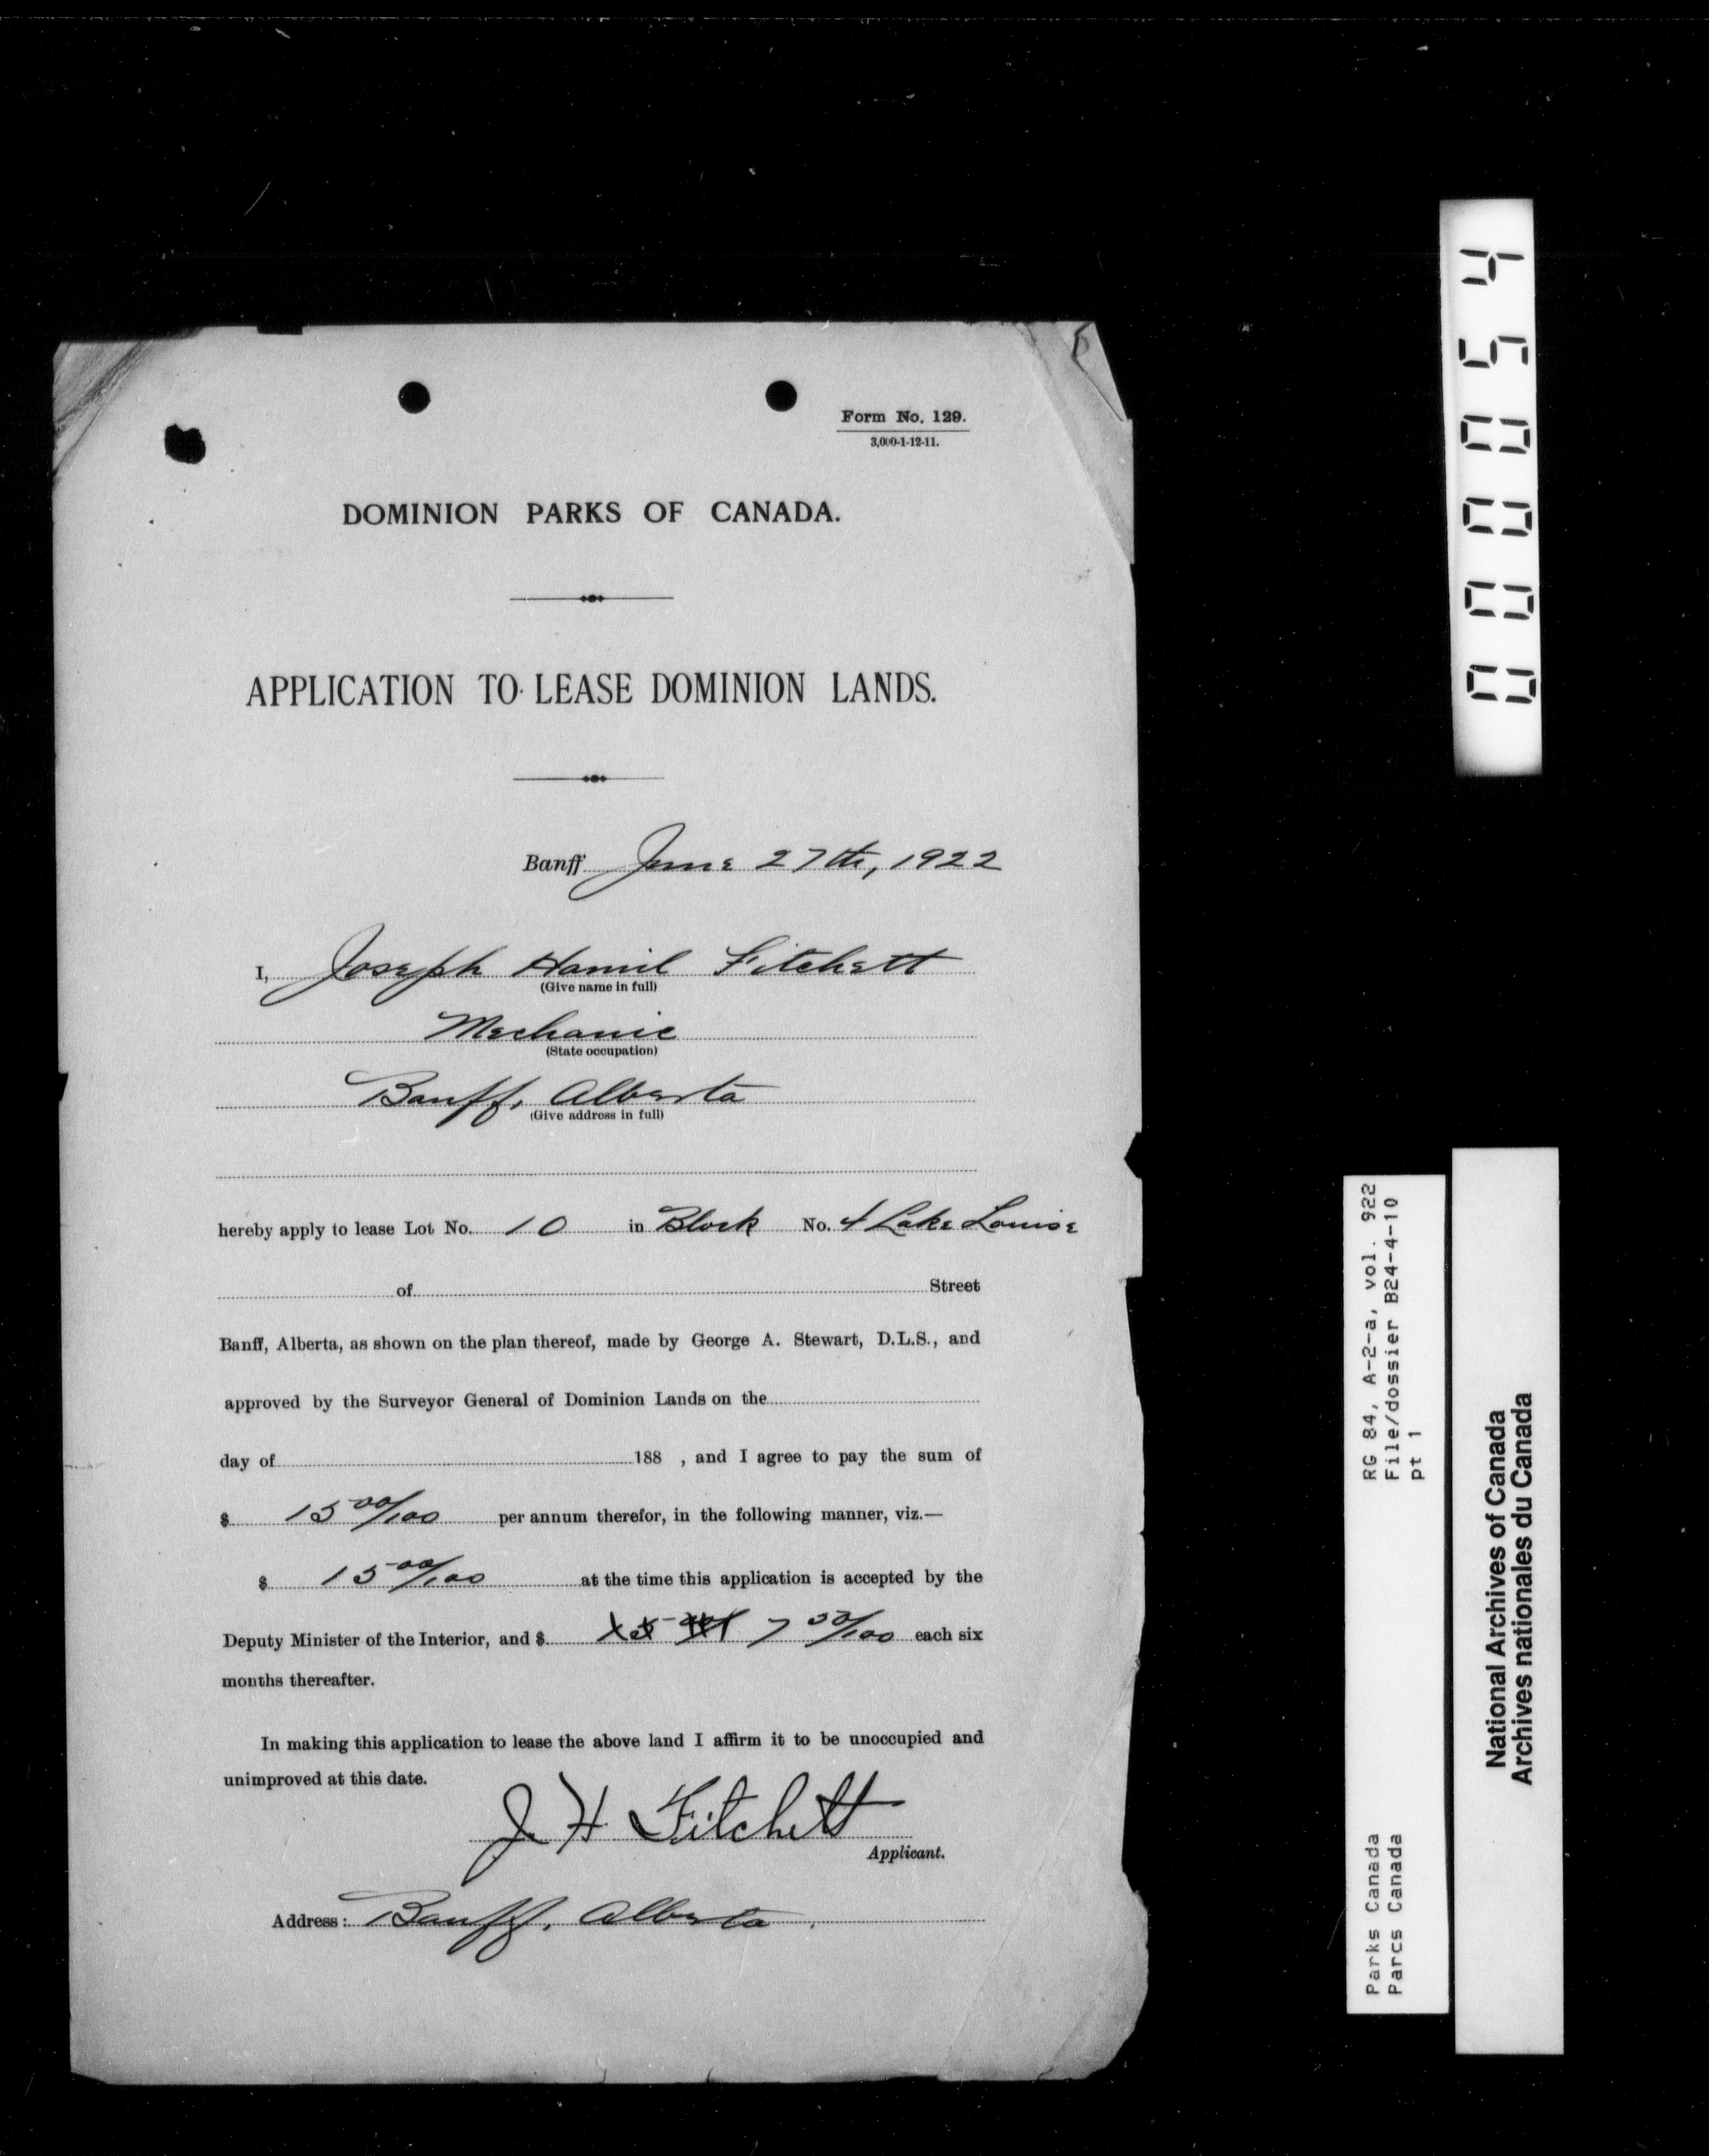 Form No. 129.
3,000-1-12-11.
DOMINION PARKS OF CANADA.
APPLICATION TO LEASE DOMINION LANDS.
Banff June 27th, 1922
I, Joseph Hamil Fitchett
(Give name in full)
Mechanic
(State occupation)
Banff, Alberta
(Give address in full)
hereby apply to lease Lot No. 10 in Block No. 4 Lake Louise
of Street
Banff, Alberta, as shown on the plan thereof, made by George A. Stewart, D.L.S., and
approved by the Surveyor General of Dominion Lands on the
day of 188 , and I agree to pay the sum of
$ 15 00/100 per annum therefor, in the following manner, viz.—
$ 15 00/100 at the time this application is accepted by the
Deputy Minister of the Interior, and $ 7 50/100 each six
months thereafter.
In making this application to lease the above land I affirm it to be unoccupied and
unimproved at this date.
J. H. Fitchett
Applicant.
Address: Banff, Alberta.
00054
RG 84, A-2-a, vol. 922
File/dossier B24-4-10
pt 1
Parks Canada
Parcs Canada
National Archives of Canada
Archives nationales du Canada